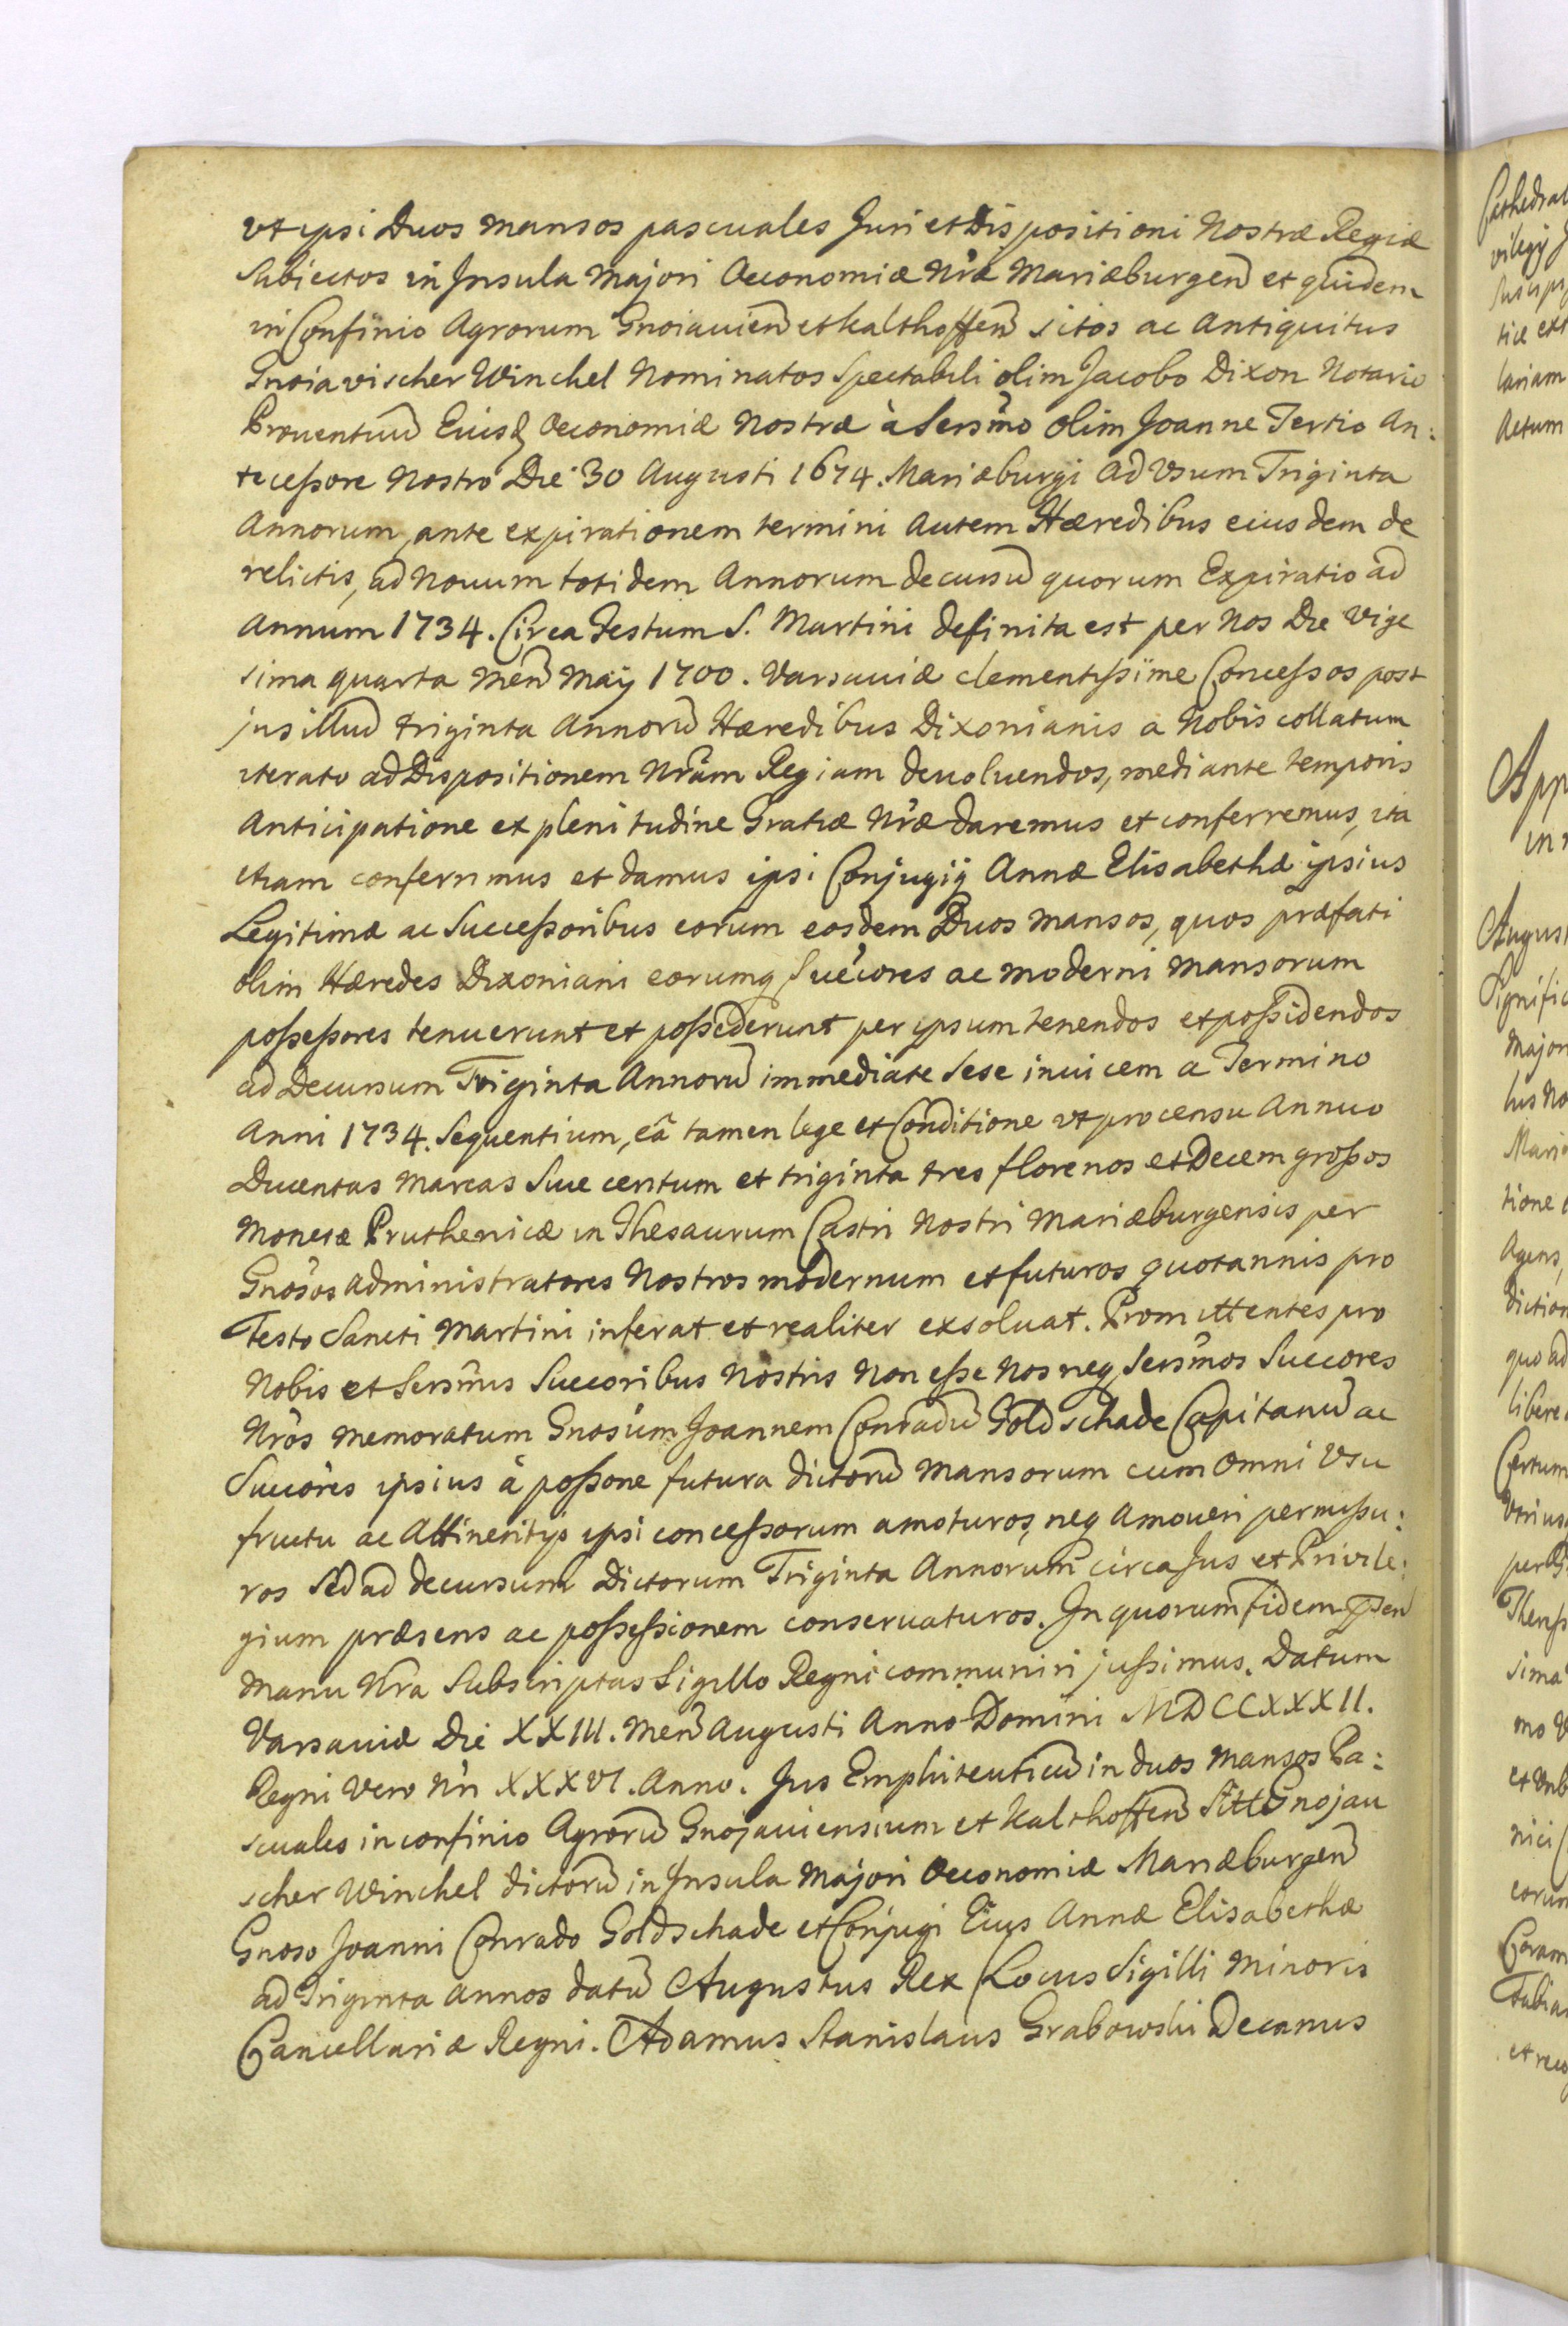 vt ipsi Duos mansos pascuales Juri et Dispositioni Nostræ Regiæ
Subiectos in Jnsula Majori Oeconomiæ Nr̃æ Mariæburgeñ et quidem
in Confinio Agrorum Gnoiavieñ et Kalthoffeñ sitos ac Antiquitus
Gnoiavischer Winckel Nominatos Spectabili olim Jacobo Dixon Notario
Prouentuũ Eiusq Oeconomiæ Nostræ à Sersm̃o olim Joanne Tertio An:
tecessore Nostro Die 30 Augusti 1674. Mariæburgi Ad Vsum Triginta
Annorum, ante expirationem termini Autem Hæredibus eiusdem de
relictis, ad Nouum totidem Annorum decursũ quorum Expiratio ad
Annum 1734. Circa Festum S. Martini definita est per Nos Die Vige
sima quarta Meñ Maÿ 1700. Varsauiæ clementissime Concessos post
jus illud triginta Annorũ Hæredibus Dixonianis a Nobis collatum
iterato ad Dispositionem Nr̃am Regiam deuoluendos, mediante temporis
Anticipatione et plenitudine Gratiæ Nr̃æ daremus et conferremus, ita
etiam conferimus et damus ipsi Conjugiÿ Annæ Elisabethæ ipsius
Legitimæ ac Successoribus eorum eosdem Duos Mansos, quos præfati
olim Hæredes Dixoniani eorumq Succ̃ores ac moderni Mansorum
possessores tenuerunt et possederunt per ipsum tenendos et possidendos
ad Decursum Triginta Annorũ immediate Sese inuicem a Termino
Anni 1734. Sequentium, eâ tamen lege et Conditione vt pro censu Annuo
Ducentas Marcas Siue centum et triginta tres florenos et Decem grossos
Monetæ Pruthenicæ in Thesaurum Castri Nostri Mariæburgensis per
Gnõsos Administratores Nostros modernum et futuros quotannis pro
Festo Sancti Martini inferat et realiter exsoluat. Promittentes pro
Nobis et Sersm̃is Succoribus Nostris Non esse Nos neq Sersm̃os Succores
Nr̃os memoratum Gnosũm Joannem Conradũ Goldschade Capitanũ ac
Succõres ipsius à possone futura dictorũ Mansorum cum Omni Vsu
fructu ac Attinentijs ipsi concessorum amoturos, neq Amoueri permissu:
ros Sed ad decursum Dictorum Triginta Annorum circa Jus et Privile:
gium præsens ac possessionem conseruaturos. Jn quorum fidem p̃sen
Manu Nr̃a Subscriptas Sigillo Regni communiri jussimus. Datum
Varsauiæ Die XXIII. Meñ Augusti Anno Domini MDCCXXXII.
Regni Vero Nr̃i XXXVI. Anno. Jus Emphiteuticũ in duos Mansos Pa:
scuales in confinio Agrorũ Gnojauiensium et Kalthoffeñ Sittõ Gnojau
scher Winckel dictorũ in Jnsula Majori Oeconomiæ Mariæburgeñ
Gnoso Joanni Conrado Goldschade et Conjugi Eius Annæ Elisabethæ
ad Triginta Annos datũ Augustus Rex (Locus Sigilli Minoris
Cancellariæ Regni. Adamus Stanislaus Grabowski Decanus
Cathedral
vilegÿ
tiæ ext
lariam
Actum
App
in
August
Signific
Major
lus No
Mariæ
tione
Agens,
diction
quo ad
libere
Certum
per
sima
mo V
et
nici
eorum
Coram
et reco